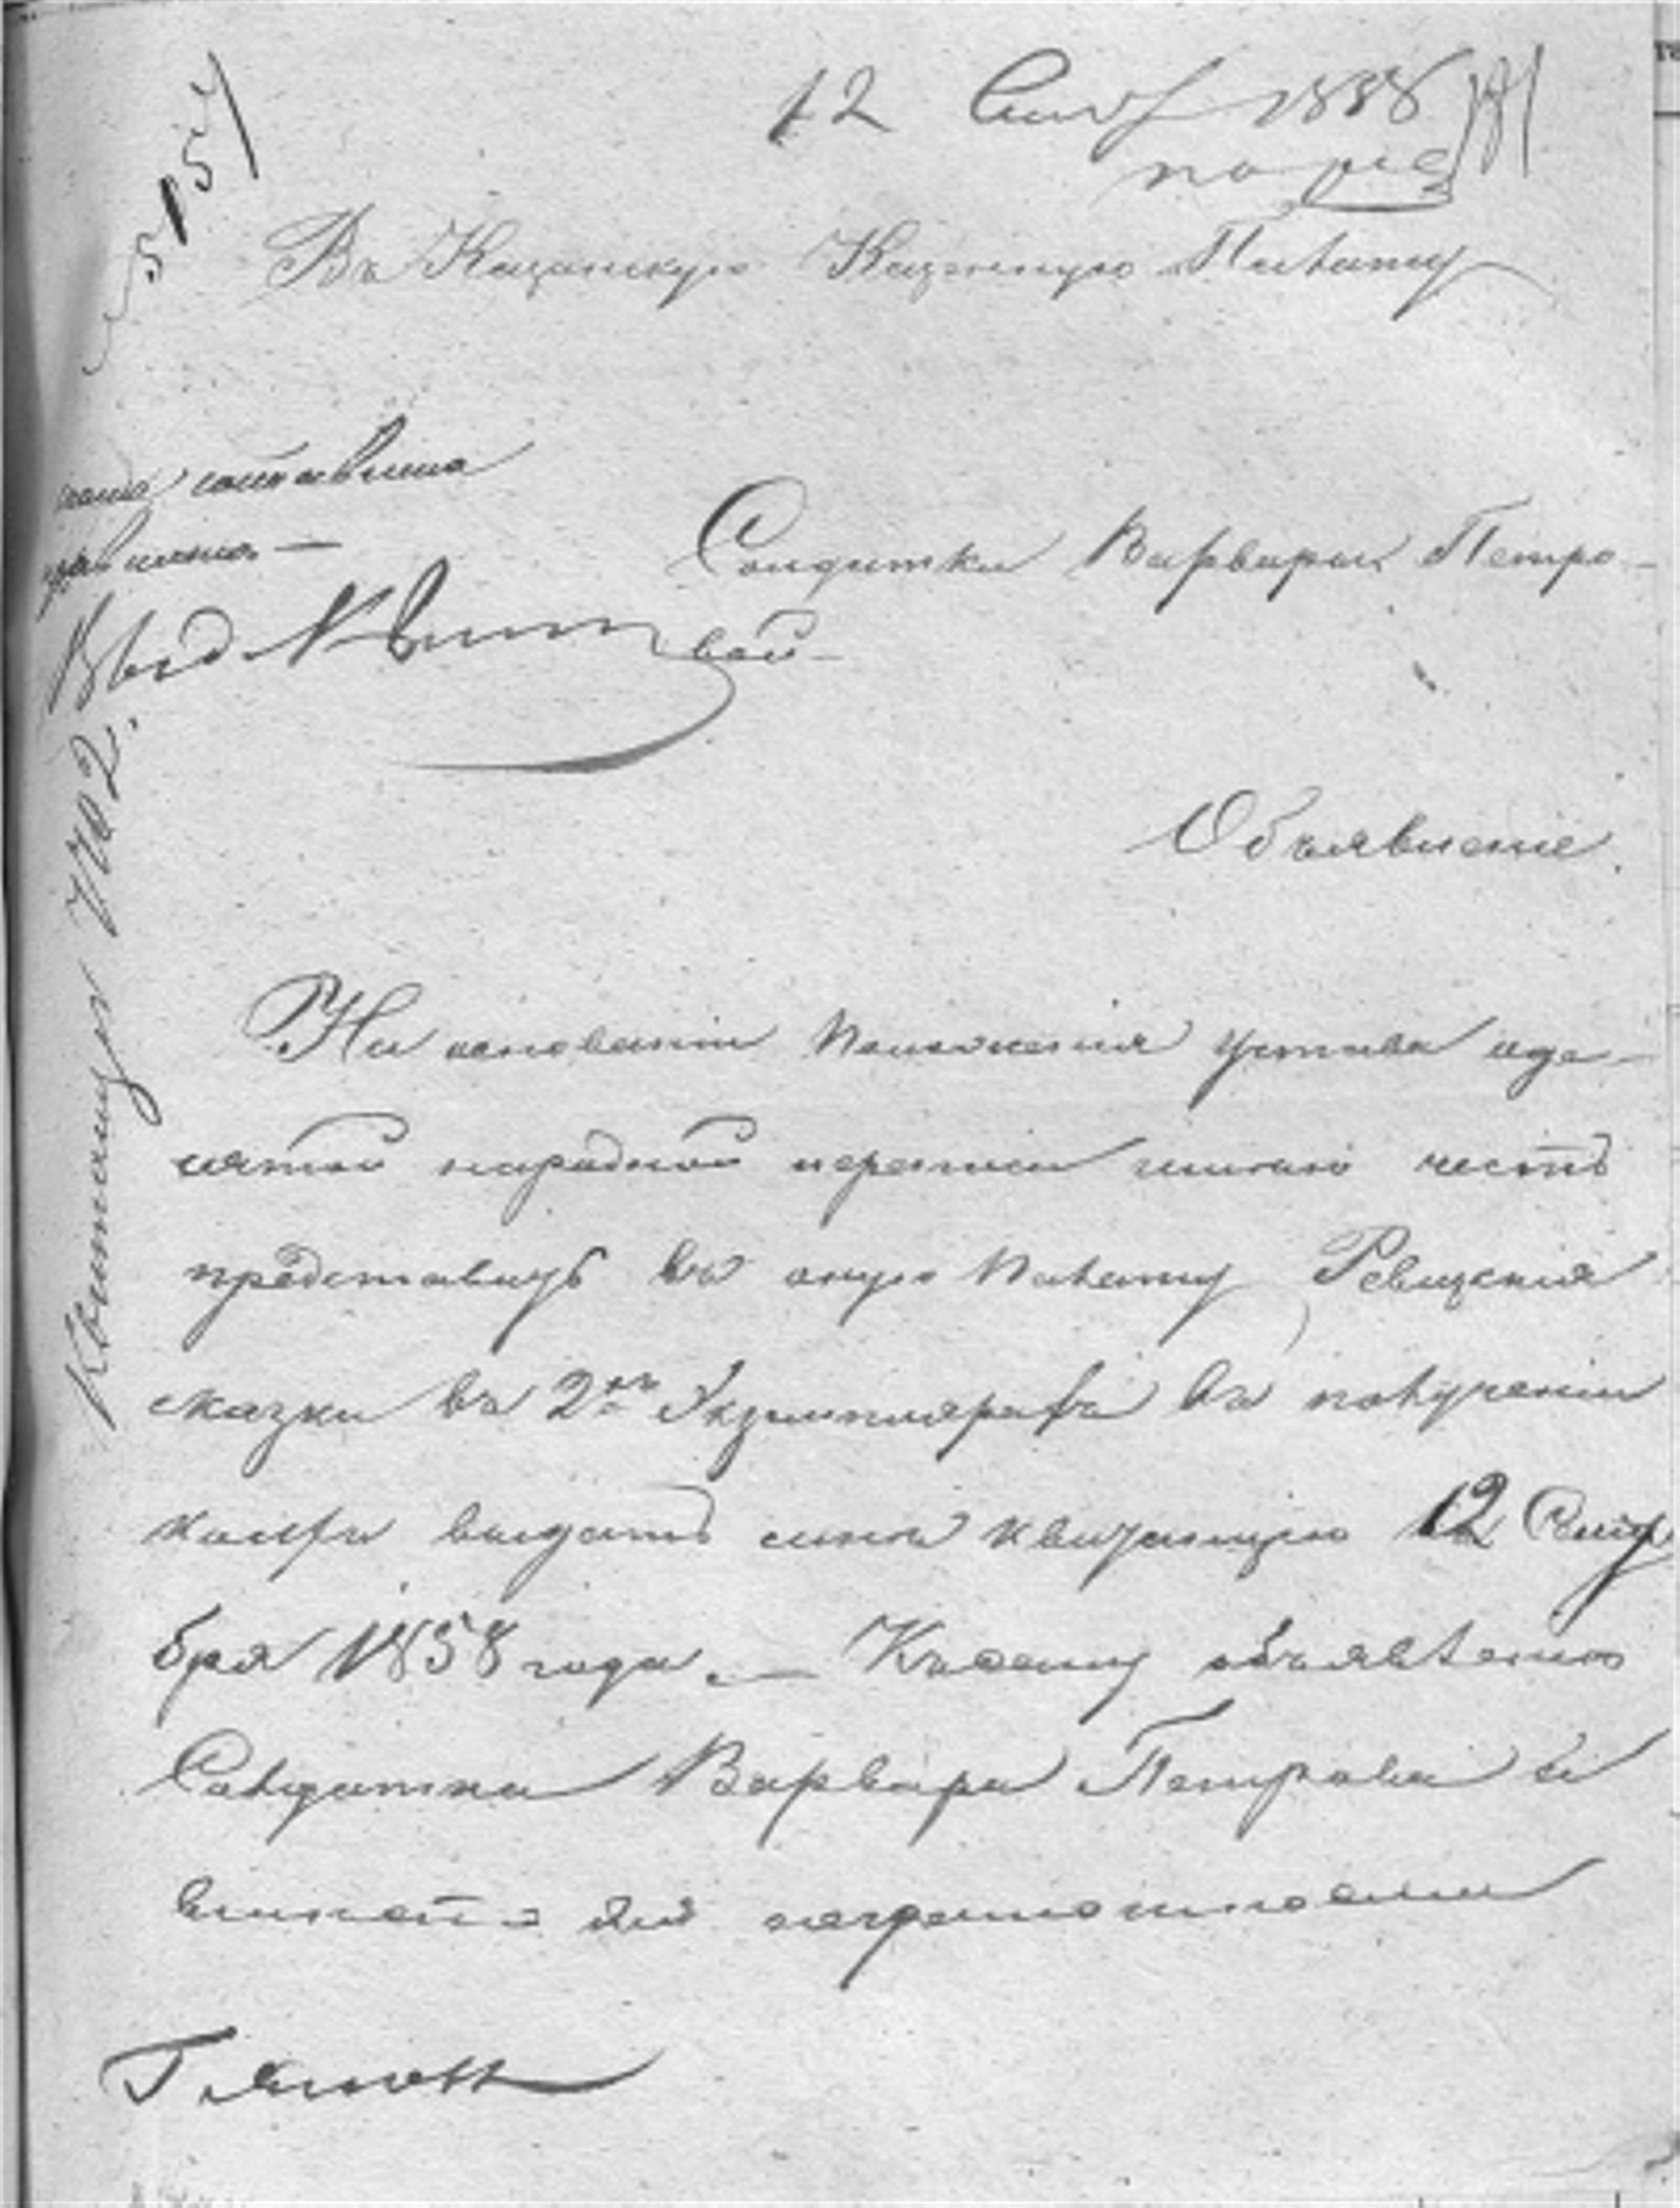 12 Сент 1858
5157
Въ Казанскую Казенную Палату
Солдатки Варвары Петро-
вой
Объявленіе.
На основаніи положенія устава о де-
сятой народной переписи имѣю честь
представить въ оную Палату Ревизскія
сказки въ 2хъ Экземплярахъ въ полученіи
коихъ выдать мнѣ квитанцію 12 Сентя
бря 1858 года. — Къ сему объявленію
Солдатка Варвара Петрова а
вместо ея неграмотной
Квитанц 7702.